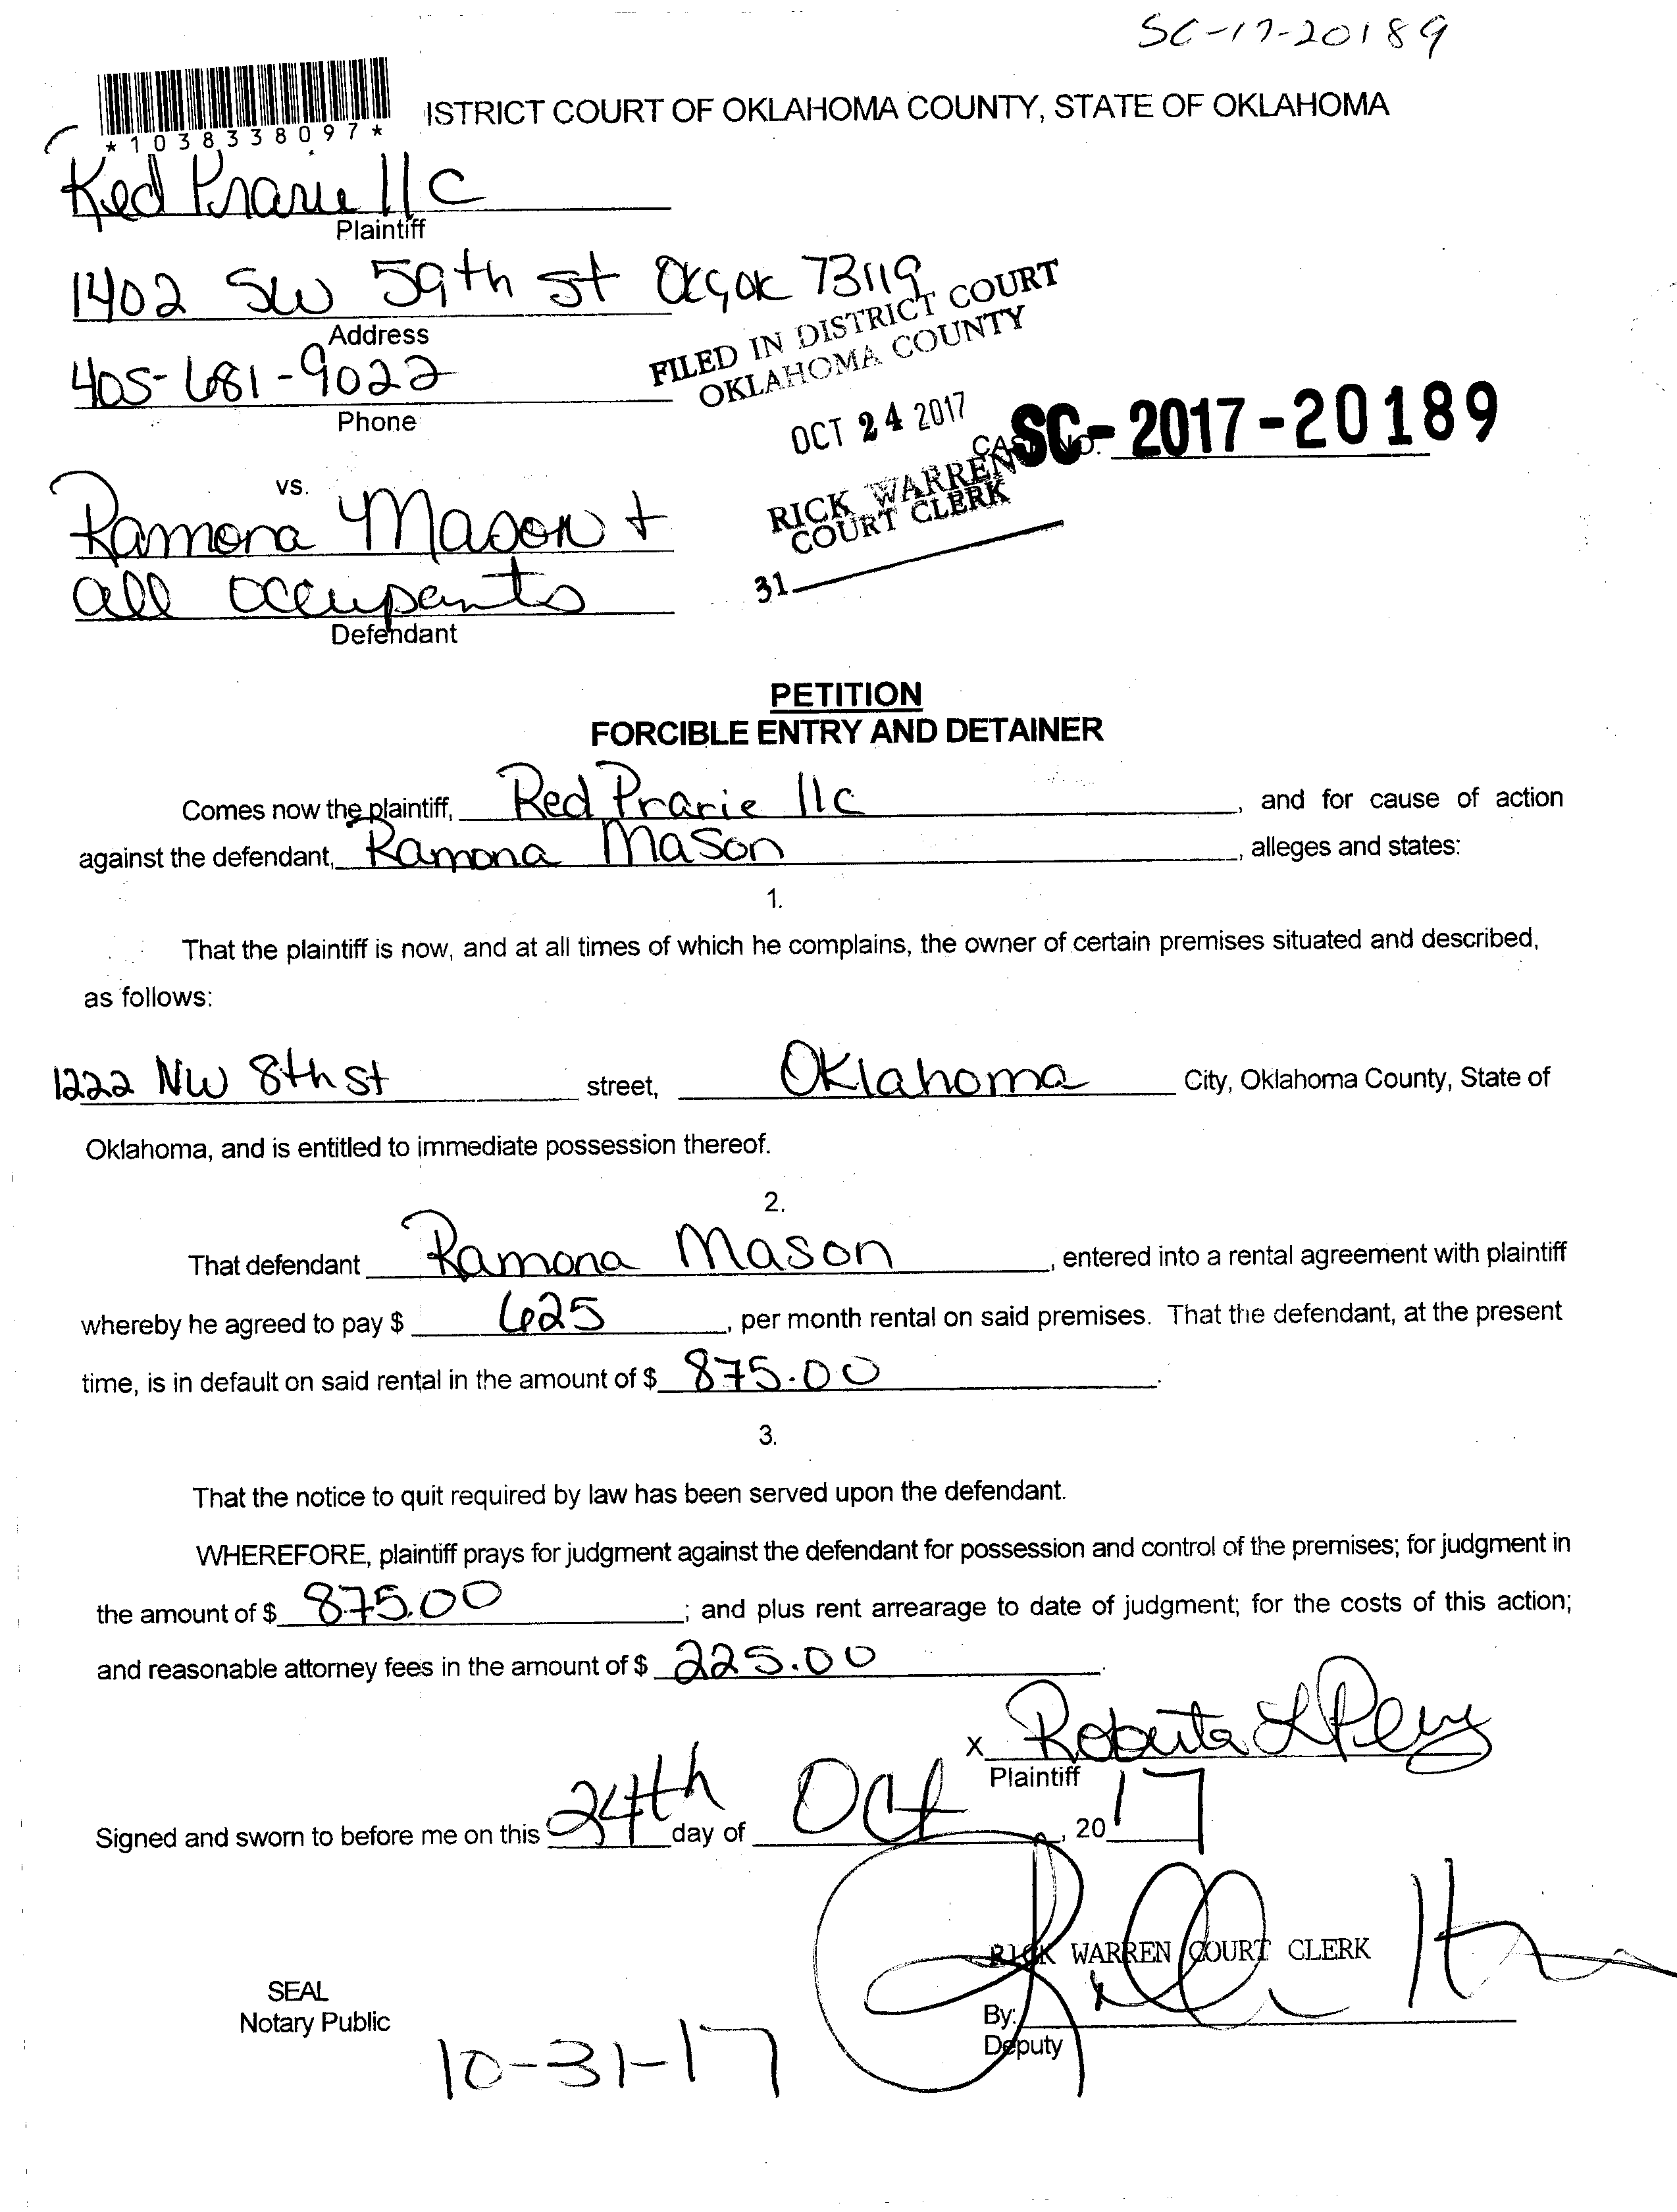 SC-17-20189
ISTRICT COURT OF OKLAHOMA COUNTY, STATE OF OKLAHOMA
*1038338097*
Red Prarie llc
Plaintiff
1402 SW 59th st OKC, OK 73119
Address
405-681-9022
Phone
FILED IN DISTRICT COURT
OKLAHOMA COUNTY
OCT 24 2017
CASE NO. SC-2017-20189
RICK WARREN
COURT CLERK
31
vs.
Ramona Mason +
all occupants
Defendant
PETITION
FORCIBLE ENTRY AND DETAINER
Comes now the plaintiff, Red Prarie llc, and for cause of action
against the defendant, Ramona Mason, alleges and states:
1.
That the plaintiff is now, and at all times of which he complains, the owner of certain premises situated and described,
as follows:
1222 NW 8th st street, Oklahoma City, Oklahoma County, State of
Oklahoma, and is entitled to immediate possession thereof.
2.
That defendant Ramona Mason, entered into a rental agreement with plaintiff
whereby he agreed to pay $ 625, per month rental on said premises. That the defendant, at the present
time, is in default on said rental in the amount of $ 875.00.
3.
That the notice to quit required by law has been served upon the defendant.
WHEREFORE, plaintiff prays for judgment against the defendant for possession and control of the premises; for judgment in
the amount of $ 875.00; and plus rent arrearage to date of judgment; for the costs of this action;
and reasonable attorney fees in the amount of $ 225.00.
X Roberta L
Plaintiff
Signed and sworn to before me on this 24th day of Oct, 2017
RICK WARREN COURT CLERK
SEAL
Notary Public
By:
Deputy
10-31-17